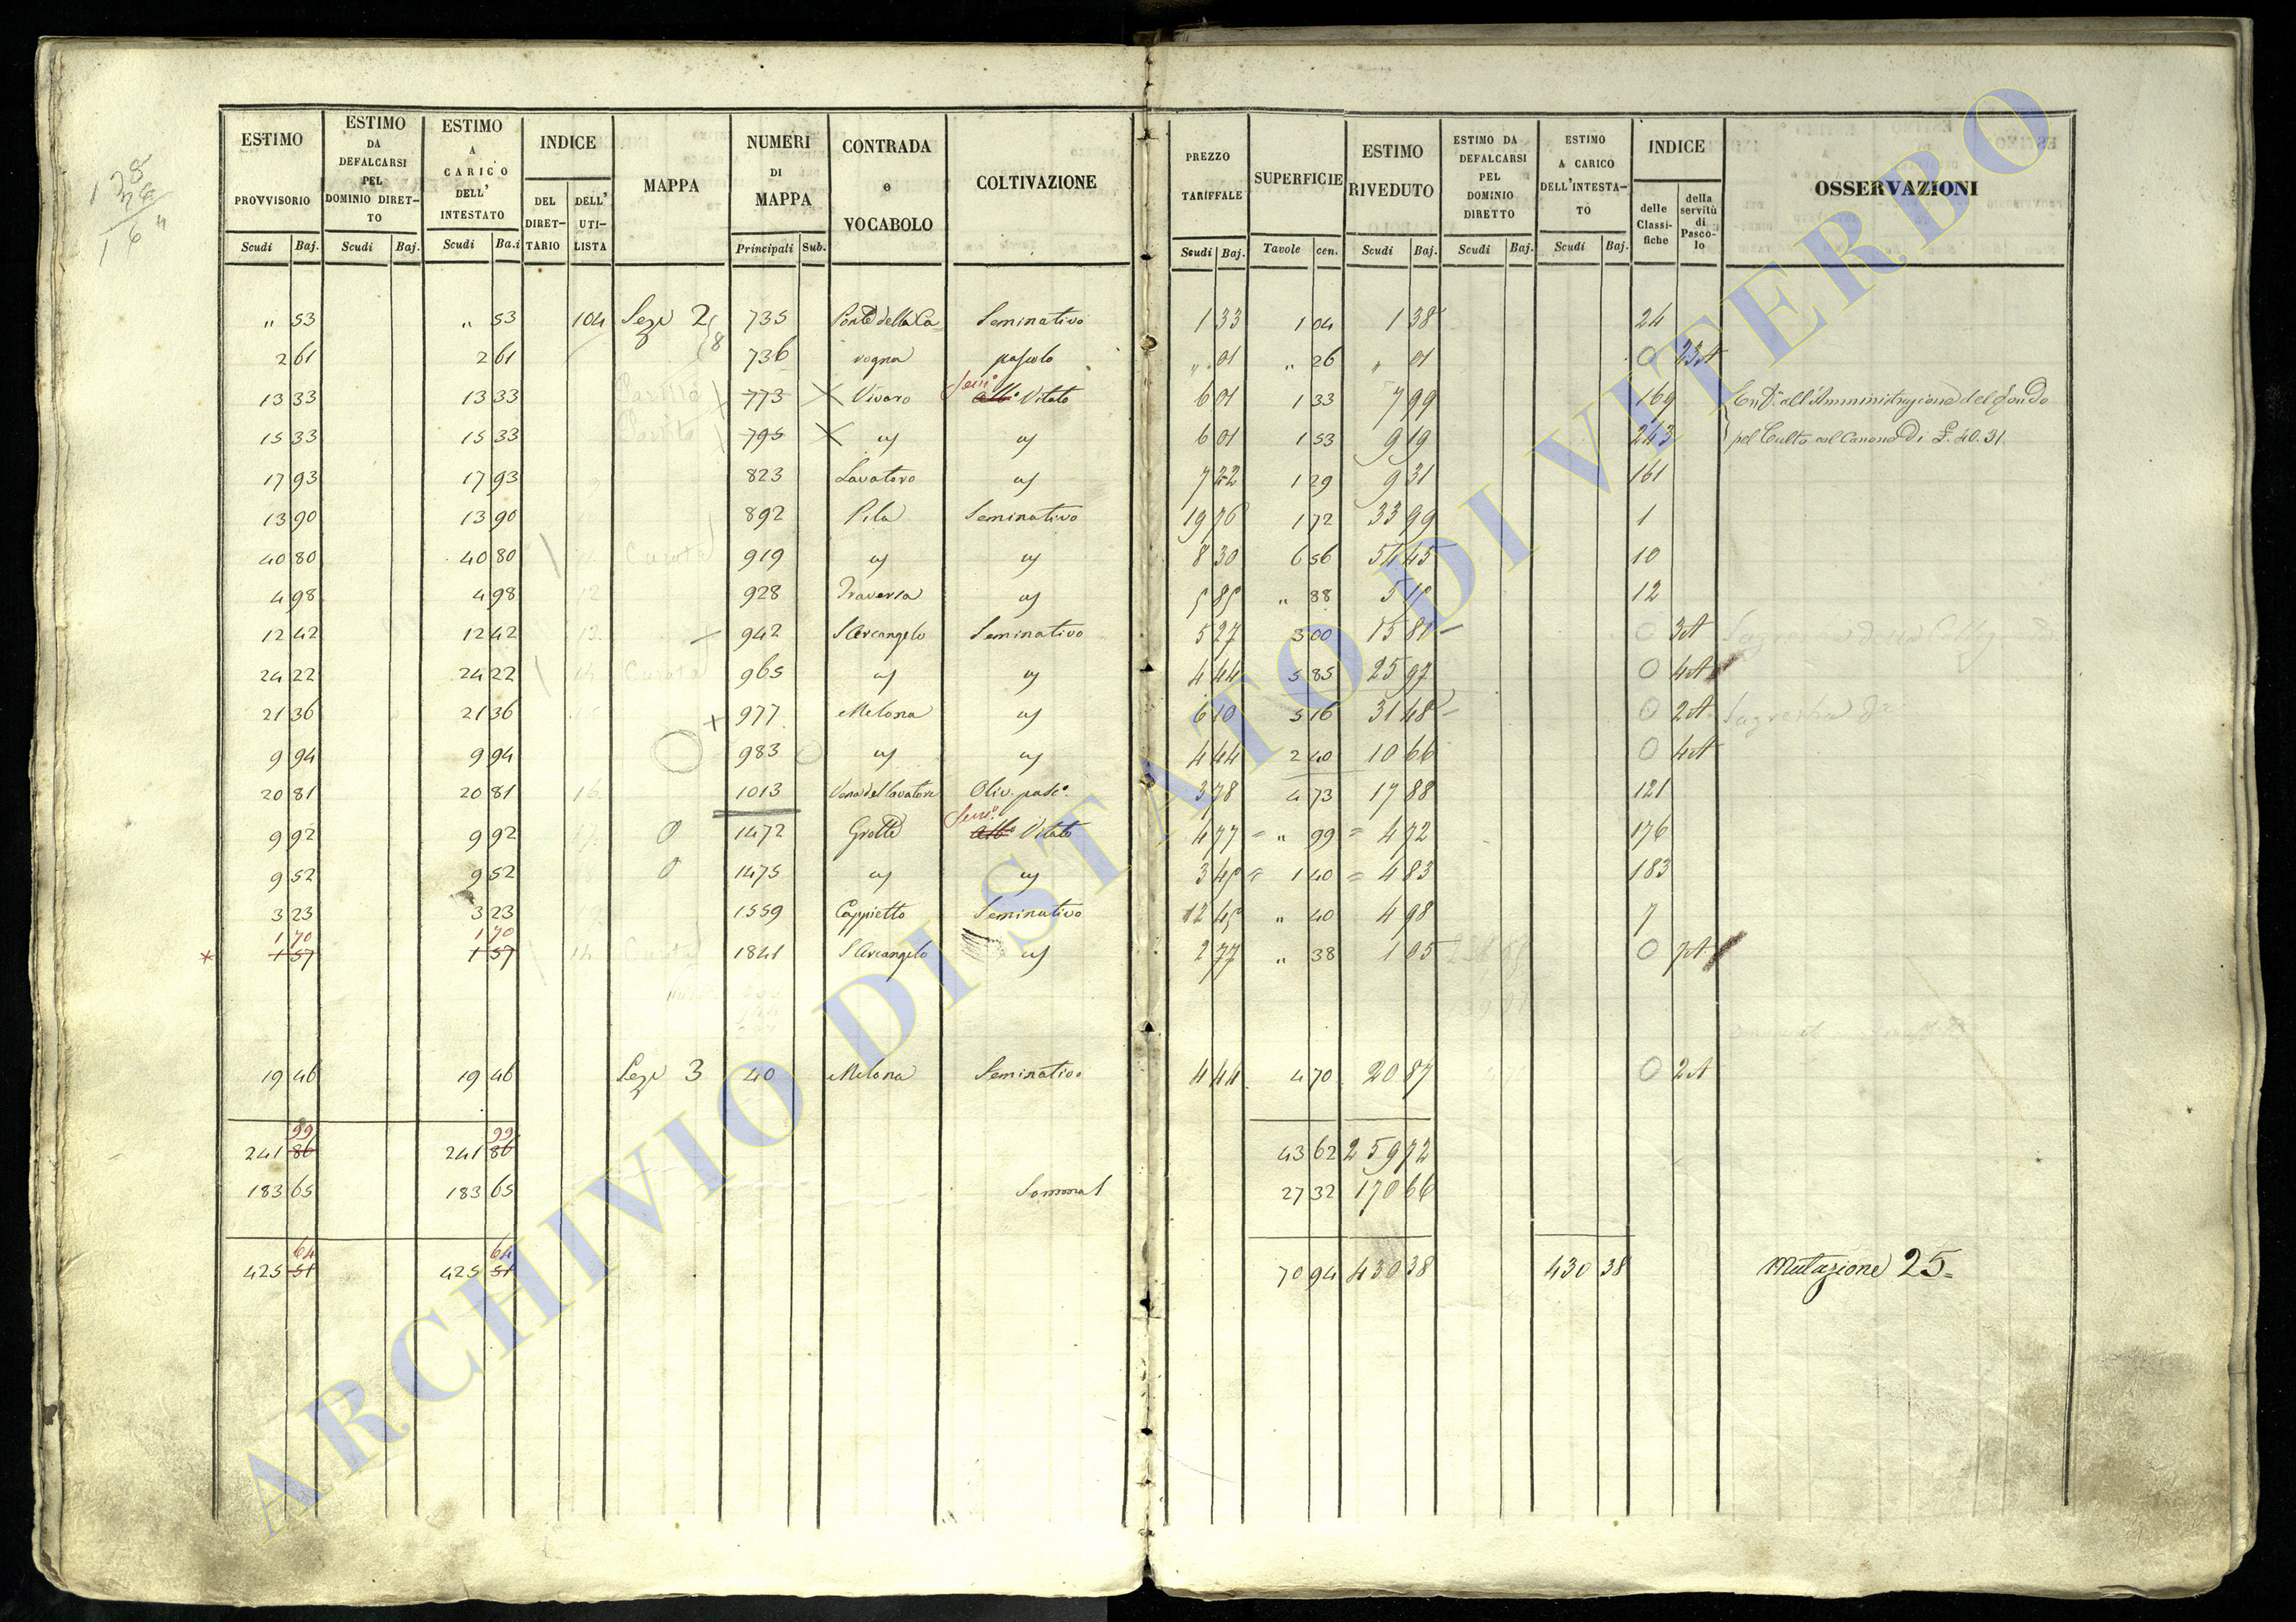 ARCHIVIO DI STATO DI VITERBO
ESTIMO PROVVISORIO Scudi Baj. | ESTIMO DA DEFALCARSI PEL DOMINIO DIRETTO Scudi Baj. | ESTIMO A CARICO DELL' INTESTATO Scudi Ba.i | INDICE DEL DIRETTARIO DELL' UTILISTA | MAPPA | NUMERI DI MAPPA Principali Sub. | CONTRADA o VOCABOLO | COLTIVAZIONE | PREZZO TARIFFALE Scudi Baj. | SUPERFICIE Tavole cen. | ESTIMO RIVEDUTO Scudi Baj. | ESTIMO DA DEFALCARSI PEL DOMINIO DIRETTO Scudi Baj. | ESTIMO A CARICO DELL'INTESTATO Scudi Baj. | INDICE delle Classifiche della servitù di Pascolo | OSSERVAZIONI
" 53 " 53 104 Sezе 2 735 Ponte della Ca= Seminativo 1 33 1 04 1 38 24
2 61 2 61 8 736 vogna pascolo " 01 " 26 " 01 0 23A
13 33 13 33 Partita 773 Vivaro Semo Albo Vitato 6 01 1 33 7 99 169 Enf.a all'Amministrazione del fondo
15 33 15 33 Partita 795 " " 6 01 1 53 9 19 243 pel Culto col Canone di £. 40.31.
17 93 17 93 823 Lavatoro " 7 22 1 29 9 31 161
13 90 13 90 892 Pila Seminativo 19 76 1 72 33 99 1
40 80 40 80 Curata 919 " " 8 30 6 56 54 45 10
4 98 4 98 12 928 Traversa " 5 85 " 88 5 15 12
12 42 12 42 13 942 S Arcangelo Seminativo 5 27 3 00 15 81 0 3A
24 22 24 22 14 Curata 965 " " 4 44 5 85 25 97 0 4A
21 36 21 36 977 Melona " 6 10 5 16 31 48 0 2A Sagrestia
9 94 9 94 983 " " 4 44 2 40 10 66 0 4A
20 81 20 81 16 1013 Vena del Lavatore Oliv. pasco. 3 78 4 73 17 88 121
9 92 9 92 1472 Grotte Semo Albo Vitato 4 77 " 99 4 72 176
9 52 9 52 1475 " " 3 45 1 40 4 83 183
3 23 3 23 1559 Cappietto Seminativo 12 45 " 40 4 98 7
1 70 1 70
* 1 57 1 57 14 Curata 1841 S Arcangelo " 2 77 " 38 1 05 0 7A
19 46 19 46 Seze 3 40 Melona Seminativo 4 44 4 70 20 87 0 2A
99 99
241 86 241 86 43 62 259 72
183 65 183 65 Somma 27 32 170 66
64 64
425 51 425 51 70 94 430 38 430 38 Mutazione 25=